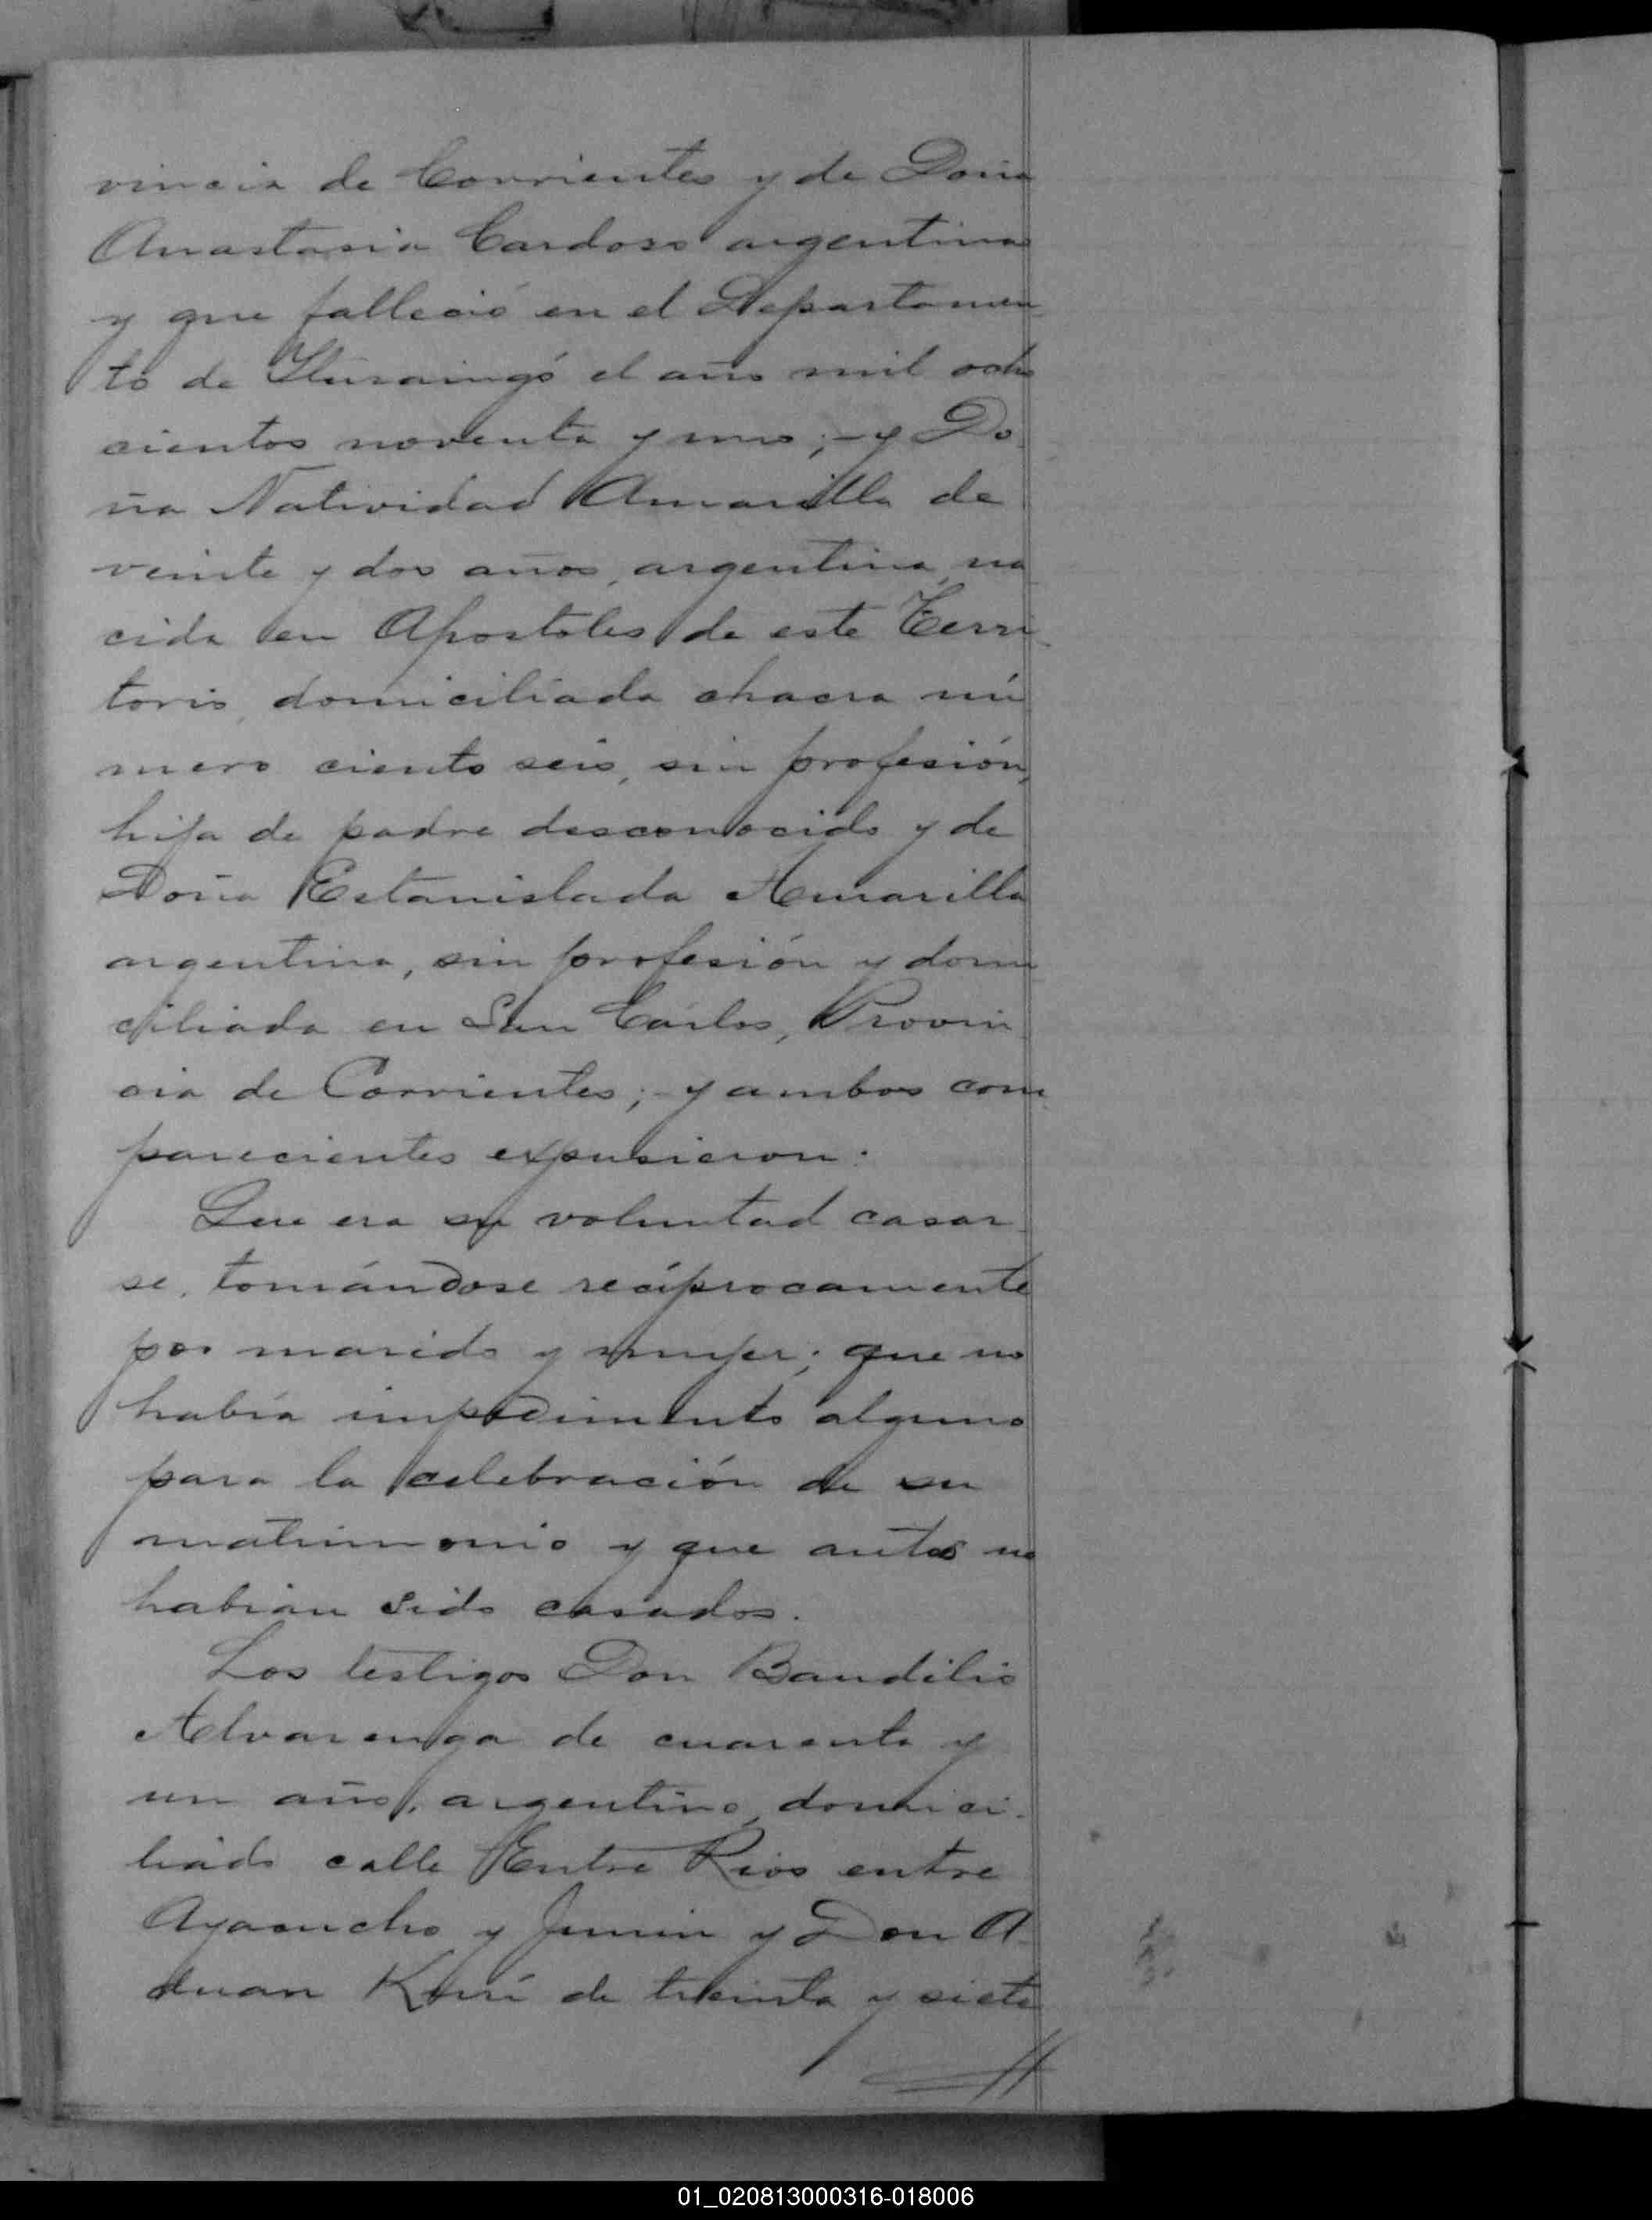 vincia de Corrientes y de Doña
Anastasia Cardoso argentina
y que falleció en el Departamen
to de Ituzaingó el año mil ocho
cientos noventa y uno; - y Do
ña Natividad Amarilla de
veinte y dos años, argentina, na
cida en Apostoles de este Terri
torio, domiciliada chacra nú
mero ciento seis, sin profesión,
hija de padre desconocido y de
Doña Estanislada Amarilla
argentina, sin profesión y domi
ciliada en San Cárlos, Provin
cia de Corrientes; - y ambos com
parecientes expusieron:
Que era su voluntad casar
se, tomándose recíprocamente
por marido y mujer; que no
había impedimento alguno
para la celebración de su
matrimonio y que antes no
habían sido casados.
Los testigos Don Baudilio
Alvarenga de cuarenta y
un años, argentino, domici-
liado calle Entre Rios entre
Ayacucho y Junin y Don A
duan Kurí de treinta y siete
01_020813000316-018006